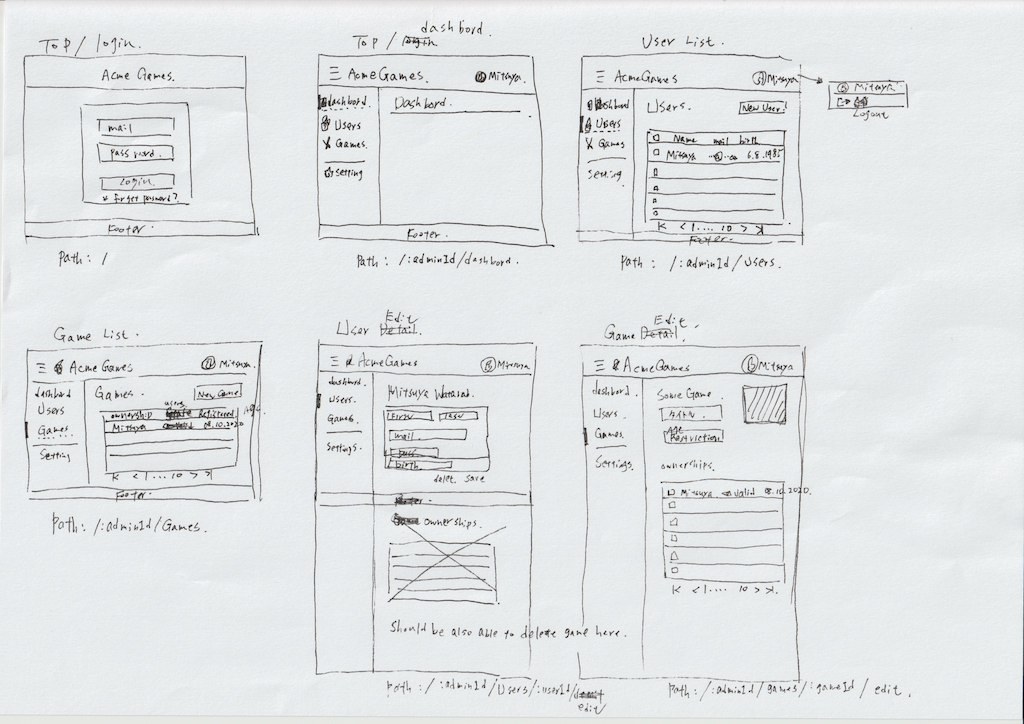 Top / login.
Acme Games.
mail
password.
Login.
* forget password?
Footer.
Path: /
Top / dashbord.
Acme Games.
Mitsuya.
dashbord.
Users
Games.
Setting
Dashbord.
Footer.
Path: /:adminId/dashbord.
User List.
Acme Games
Mitsuya
Mitsuya.
Logout
dashbord
Users
Games
Setting.
Users.
New User!
Name mail birth
Mitsuya 6.8.1985
K < 1 .... 10 > >|
Footer.
Path: /:adminId/Users.
Game List.
Acme Games
Mitsuya.
dashbord
Users
Games
Setting
Games.
New Game
ownership users Registered
Mitsuya 08.10.2020
K < 1 ... 10 > >|
Footer.
Path: /:adminId/Games.
User Edit
Detail.
Acme Games
Mitsuya
dashbord.
Users.
Games.
Settings.
Mitsuya
mail.
birth.
delet. save
Footer.
ownerships.
Should be also able to delete game here.
Path: /:adminId/Users/:userId/
edit
Game Edit.
Detail
Acme Games
Mitsuya
dashbord.
Users.
Games.
Settings.
Some Game.
Age
Restriction
ownerships.
Mitsuya. valid 08.10.2020.
K < 1 .... 10 > >|.
Path: /:adminId/games/:gameId/edit.